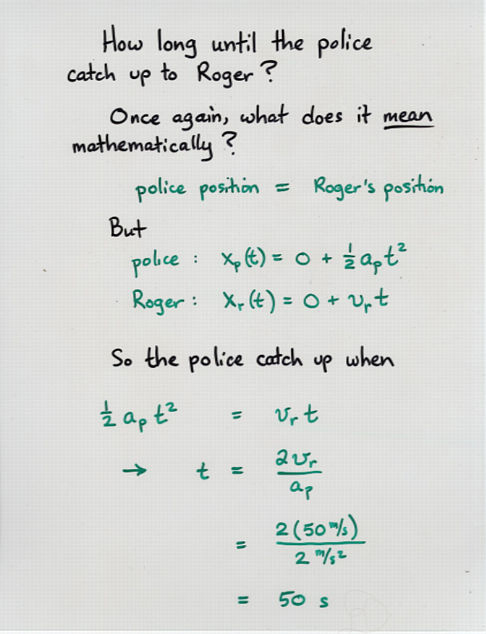 How long until the police
catch up to Roger?
Once again, what does it mean
mathematically?
police position = Roger's position
But
police : xₚ(t) = 0 + ½ aₚt²
Roger : xᵣ(t) = 0 + vᵣt
So the police catch up when
½ aₚt² = vᵣt
→ t = 2vᵣ / aₚ
= 2(50 m/s) / 2 m/s²
= 50 s